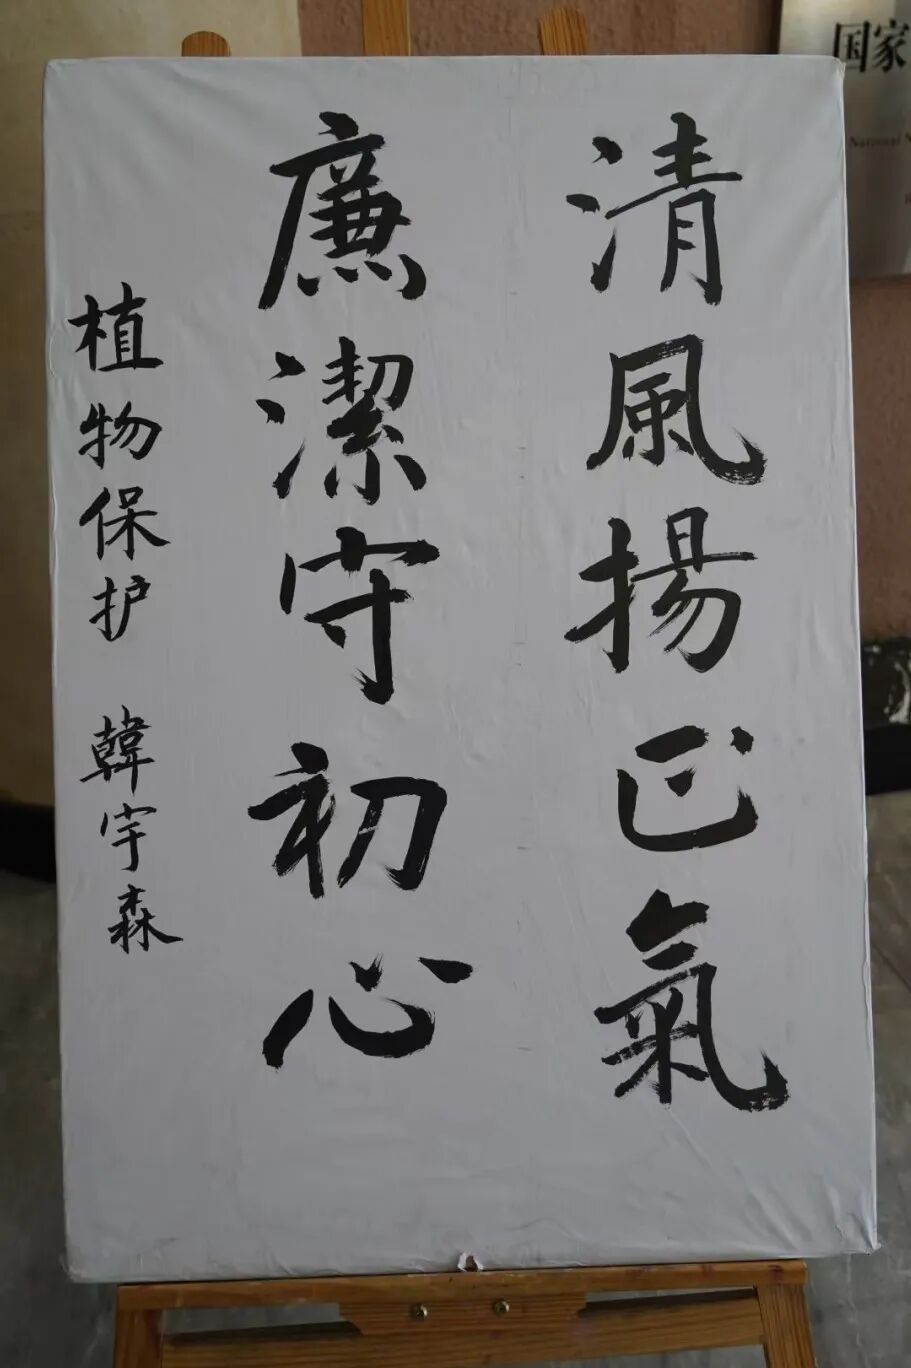 清風揚正氣
廉潔守初心
植物保护 韓宇森
国家
National N